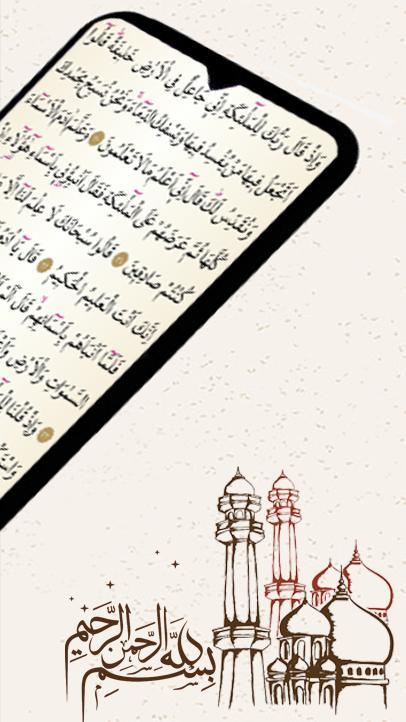 وَإِذْ قَالَ رَبُّكَ لِلْمَلَٰٓئِكَةِ إِنِّي جَاعِلٌ فِي ٱلْأَرْضِ خَلِيفَةً قَالُوا
أَتَجْعَلُ فِيهَا مَنْ يُفْسِدُ فِيهَا وَيَسْفِكُ الدِّمَآءَ وَنَحْنُ نُسَبِّحُ بِحَمْدِكَ
وَنُقَدِّسُ لَكَ قَالَ إِنِّي أَعْلَمُ مَا لَا تَعْلَمُونَ ٣٠ وَعَلَّمَ آدَمَ الْأَسْمَآءَ
كُلَّهَا ثُمَّ عَرَضَهُمْ عَلَى الْمَلَٰٓئِكَةِ فَقَالَ أَنْبِئُونِي بِأَسْمَآءِ هَٰٓؤُلَآءِ
كُنْتُمْ صَادِقِينَ ٣١ قَالُوا سُبْحَانَكَ لَا عِلْمَ لَنَا إِلَّا
إِنَّكَ أَنْتَ الْعَلِيمُ الْحَكِيمُ ٣٢ قَالَ يَا آدَمُ
فَلَمَّآ أَنْبَأَهُمْ بِأَسْمَآئِهِمْ قَالَ أَلَمْ
السَّمٰوَاتِ وَالْأَرْضِ
٣٣ وَإِذْ قُلْنَا
بِسْمِ اللَّهِ الرَّحْمَٰنِ الرَّحِيمِ